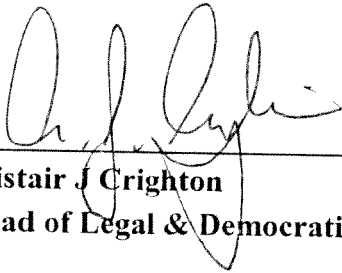 istair J Crighton
ad of Legal & Democrati